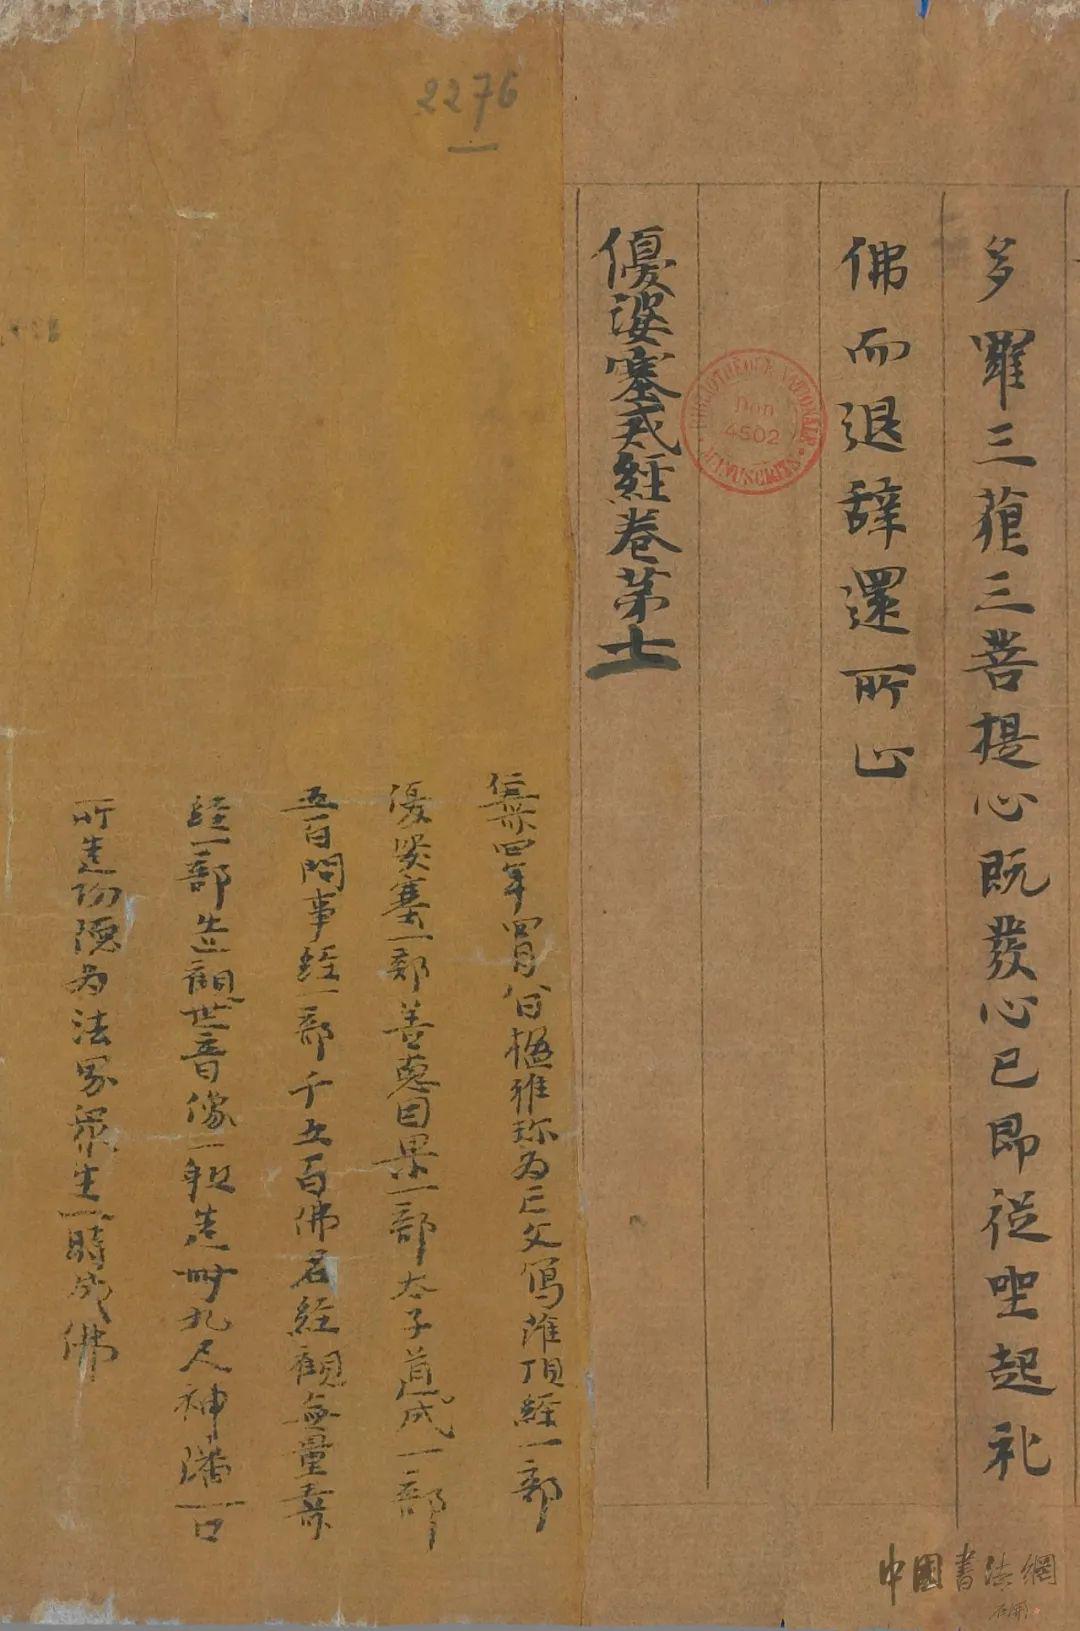 多羅三藐三菩提心既發心已即從坐起礼
佛而退辞還所止
優婆塞戒經卷第十
仁壽四年四月八日楹雅珍为亡父寫灌頂經一部
優婆塞一部善惡因果一部太子成道一部
五百問事經一部千五百佛名經觀無量壽
經一部造觀世音像一軀造卌九尺神幡一口
所造功德为法界衆生一時成佛
2276
BIBLIOTHEQUE NATIONALE
Don
4502
MANUSCRITS
中國書法網